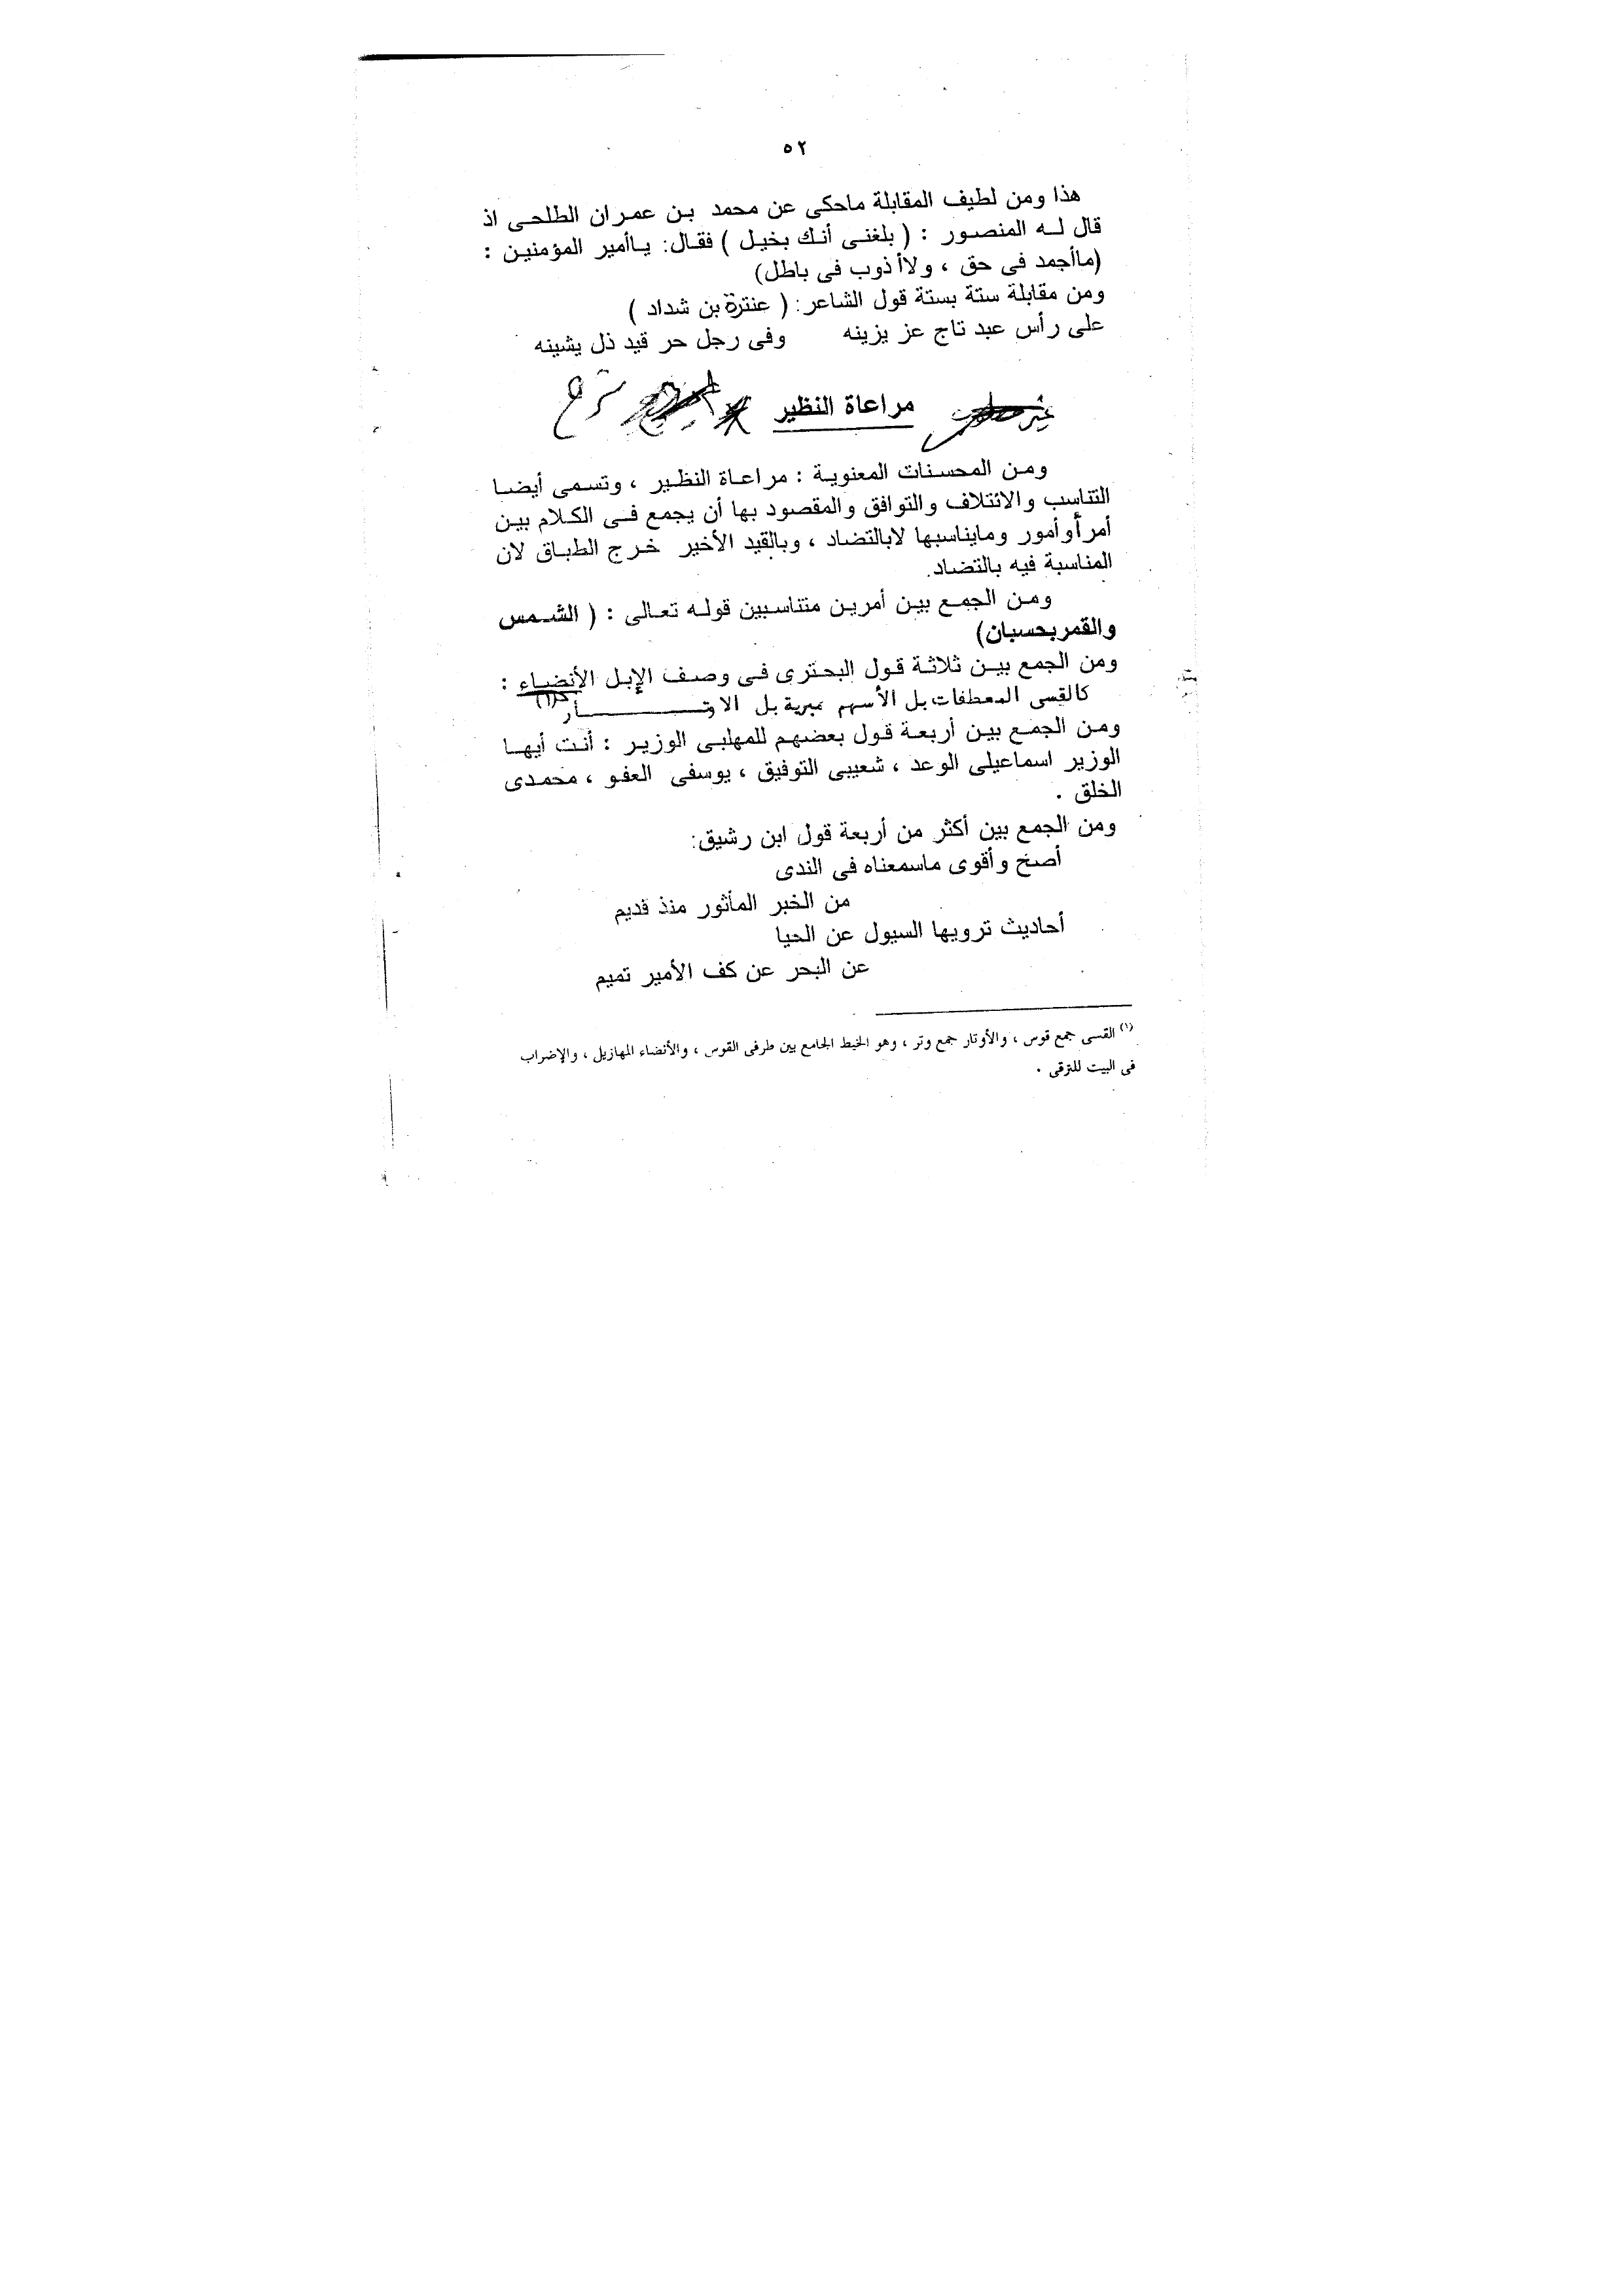 ٥٢
هذا ومن لطيف المقابلة ماحكى عن محمد بن عمران الطلحى اذ
قال له المنصور : ( بلغنى أنك بخيل ) فقال: ياأمير المؤمنين :
(ماأجمد فى حق ، ولاأذوب فى باطل)
ومن مقابلة ستة بستة قول الشاعر: ( عنترة بن شداد )
على رأس عبد تاج عز يزينه وفى رجل حر قيد ذل يشينه
مراعاة النظير
ومن المحسنات المعنوية : مراعاة النظير ، وتسمى أيضا
التناسب والائتلاف والتوافق والمقصود بها أن يجمع فى الكلام بين
أمرأوأمور ومايناسبها لابالتضاد ، وبالقيد الأخير خرج الطباق لان
المناسبة فيه بالتضاد.
ومن الجمع بين أمرين متناسبين قوله تعالى : ( الشمس
والقمربحسبان)
ومن الجمع بين ثلاثة قول البحترى فى وصف الإبل الأنضاء :
كالقسى المعطفات بل الأسهم مبرية بل الاوتار (١)
ومن الجمع بين أربعة قول بعضهم للمهلبى الوزير : أنت أيها
الوزير اسماعيلى الوعد ، شعيبى التوفيق ، يوسفى العفو ، محمدى
الخلق .
ومن الجمع بين أكثر من أربعة قول ابن رشيق:
أصخ وأقوى ماسمعناه فى الندى
من الخبر المأثور منذ قديم
أحاديث ترويها السيول عن الحيا
عن البحر عن كف الأمير تميم
(١) القسى جمع قوس ، والأوتار جمع وتر ، وهو الخيط الجامع بين طرفى القوس ، والأنضاء المهازيل ، والإضراب
فى البيت للترقى .